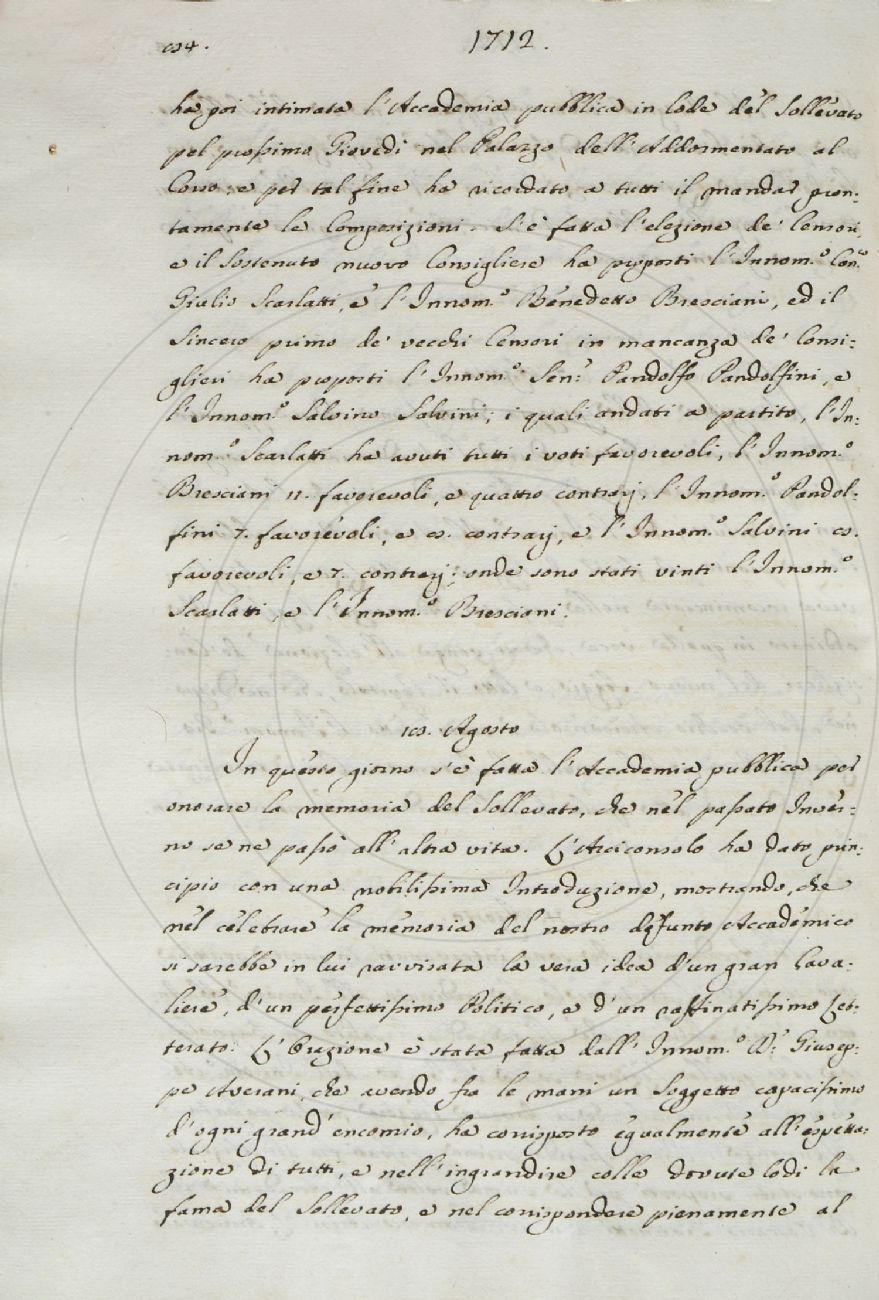 84. 1712.
ha poi intimata l'Accademia pubblica in lode del Sollevato
pel prossimo Giovedì nel Palazzo dell'Addormentato al
Corso; e per tal fine ha ricordato a tutti il mandar pron:
tamente le Composizioni. S'è fatta l'elezione de' Censori,
e il Sostenuto nuovo Consigliere ha proposti l'Innom.º Con.º
Giulio Scarlatti, e l'Innom.º Benedetto Bresciani, ed il
Sincero primo de' vecchi Censori in mancanza de' Consi:
glieri ha proposti l'Innom.º Sen.r Pandolfo Pandolfini, e
l'Innom.º Salvino Salvini; i quali andati a partito, l'In:
nom.º Scarlatti ha avuti tutti i voti favorevoli, l'Innom.º
Bresciani 11. favorevoli, e quattro contrarj, l'Innom.º Pandol:
fini 7. favorevoli, e 8. contrarj, e l'Innom.º Salvini 8.
favorevoli, e 7. contrarj; onde sono stati vinti l'Innom.º
Scarlatti, e l'Innom.º Bresciani.
18. Agosto
In questo giorno s'è fatta l'Accademia pubblica per
onorare la memoria del Sollevato, che nel passato Inver:
no se ne passò all'altra vita. L'Arciconsolo ha dato prin:
cipio con una nobilissima Introduzione, mostrando, che
nel celebrare la memoria del nostro defunto Accademico
si sarebbe in lui ravvisata la vera idea d'un gran Cava:
liere, d'un perfettissimo Politico, e d'un raffinatissimo Let:
terato. L'Orazione è stata fatta dall'Innom.º D.r Giusep:
pe Averani, che avendo fra le mani un Soggetto capacissimo
d'ogni grand'encomio, ha corrisposto egualmente all'espetta:
zione di tutti, e nell'ingrandire colle dovute lodi la
fama del Sollevato, e nel corrispondere pienamente al